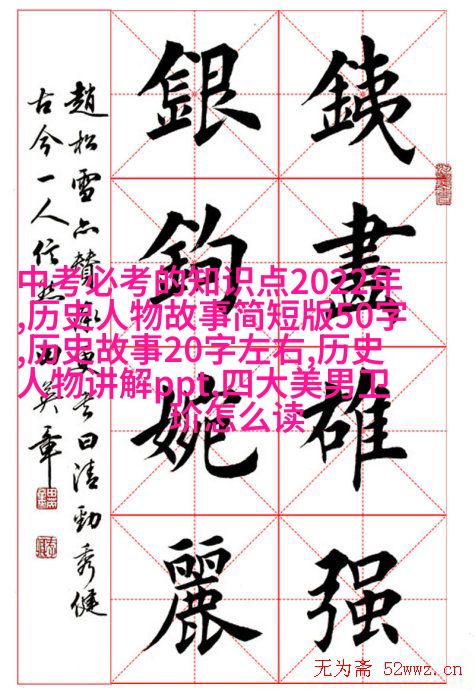 中考必考的知识点2022年
,历史人物故事简短版50字
,历史故事20字左右,历史
人物讲解ppt,四大美男卫
玠怎么读
銕畫雄强
銀鉤婉麗
趙松雪亦贊曰清勁秀健
古今一人信然田英章
无为斋 52wwz.cn